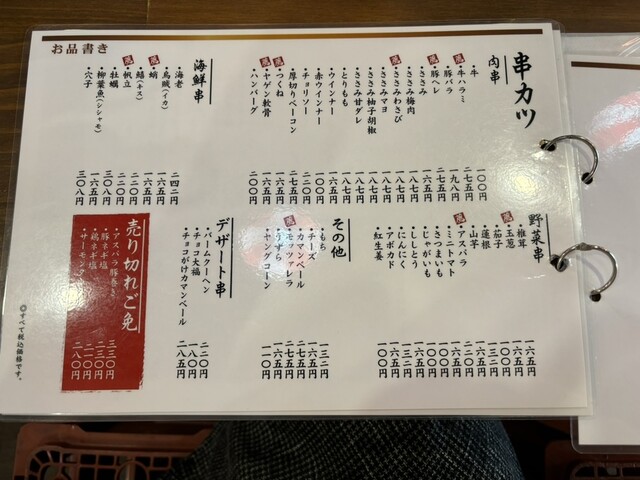 お品書き
串カツ
肉串
・牛 一〇〇円
・牛ハラミ 二七五円
・豚バラ 一九八円
・豚ヘレ 二七五円
・ささみ 一六五円
・ささみ梅肉 一八七円
・ささみわさび 一八七円
・ささみマヨ 一八七円
・ささみ柚子胡椒 一八七円
・ささみ甘ダレ 一八七円
・とりもも 一八七円
・ウインナー 一六五円
・赤ウインナー 一〇〇円
・チョリソー 二二〇円
・厚切りベーコン 二七五円
・つくね 一六五円
・ヤゲン軟骨 一六五円
・ハンバーグ 二〇〇円
海鮮串
・海老 二四二円
・烏賊(イカ) 一六五円
・蛸 一六五円
・鱚(キス) 二二〇円
・帆立 二二〇円
・牡蠣 三〇八円
・柳葉魚(シシャモ) 一六五円
・穴子 三〇八円
野菜串
・椎茸 一六五円
・玉葱 一六五円
・茄子 一〇〇円
・蓮根 一六五円
・山芋 一三二円
・アスパラ 一六五円
・ミニトマト 一二〇円
・さつまいも 一〇〇円
・じゃがいも 一〇〇円
・ししとう 一六五円
・にんにく 一三二円
・アボカド 一六五円
・紅生姜 一〇〇円
その他
・もち 一三二円
・チーズ 一六五円
・カマンベール 二七五円
・モッツァレラ 二七五円
・うずら 一六五円
・ヤングコーン 一〇〇円
デザート串
・バームクーヘン 二二〇円
・チョコ大福
・チョコがけカマンベール 二八五円
売り切れご免
・アスパラ豚巻き 三三〇円
・豚ネギ塩 二三〇円
・鶏ネギ塩 二一〇円
・サーモンマ 二八〇円
◎すべて税込価格です。